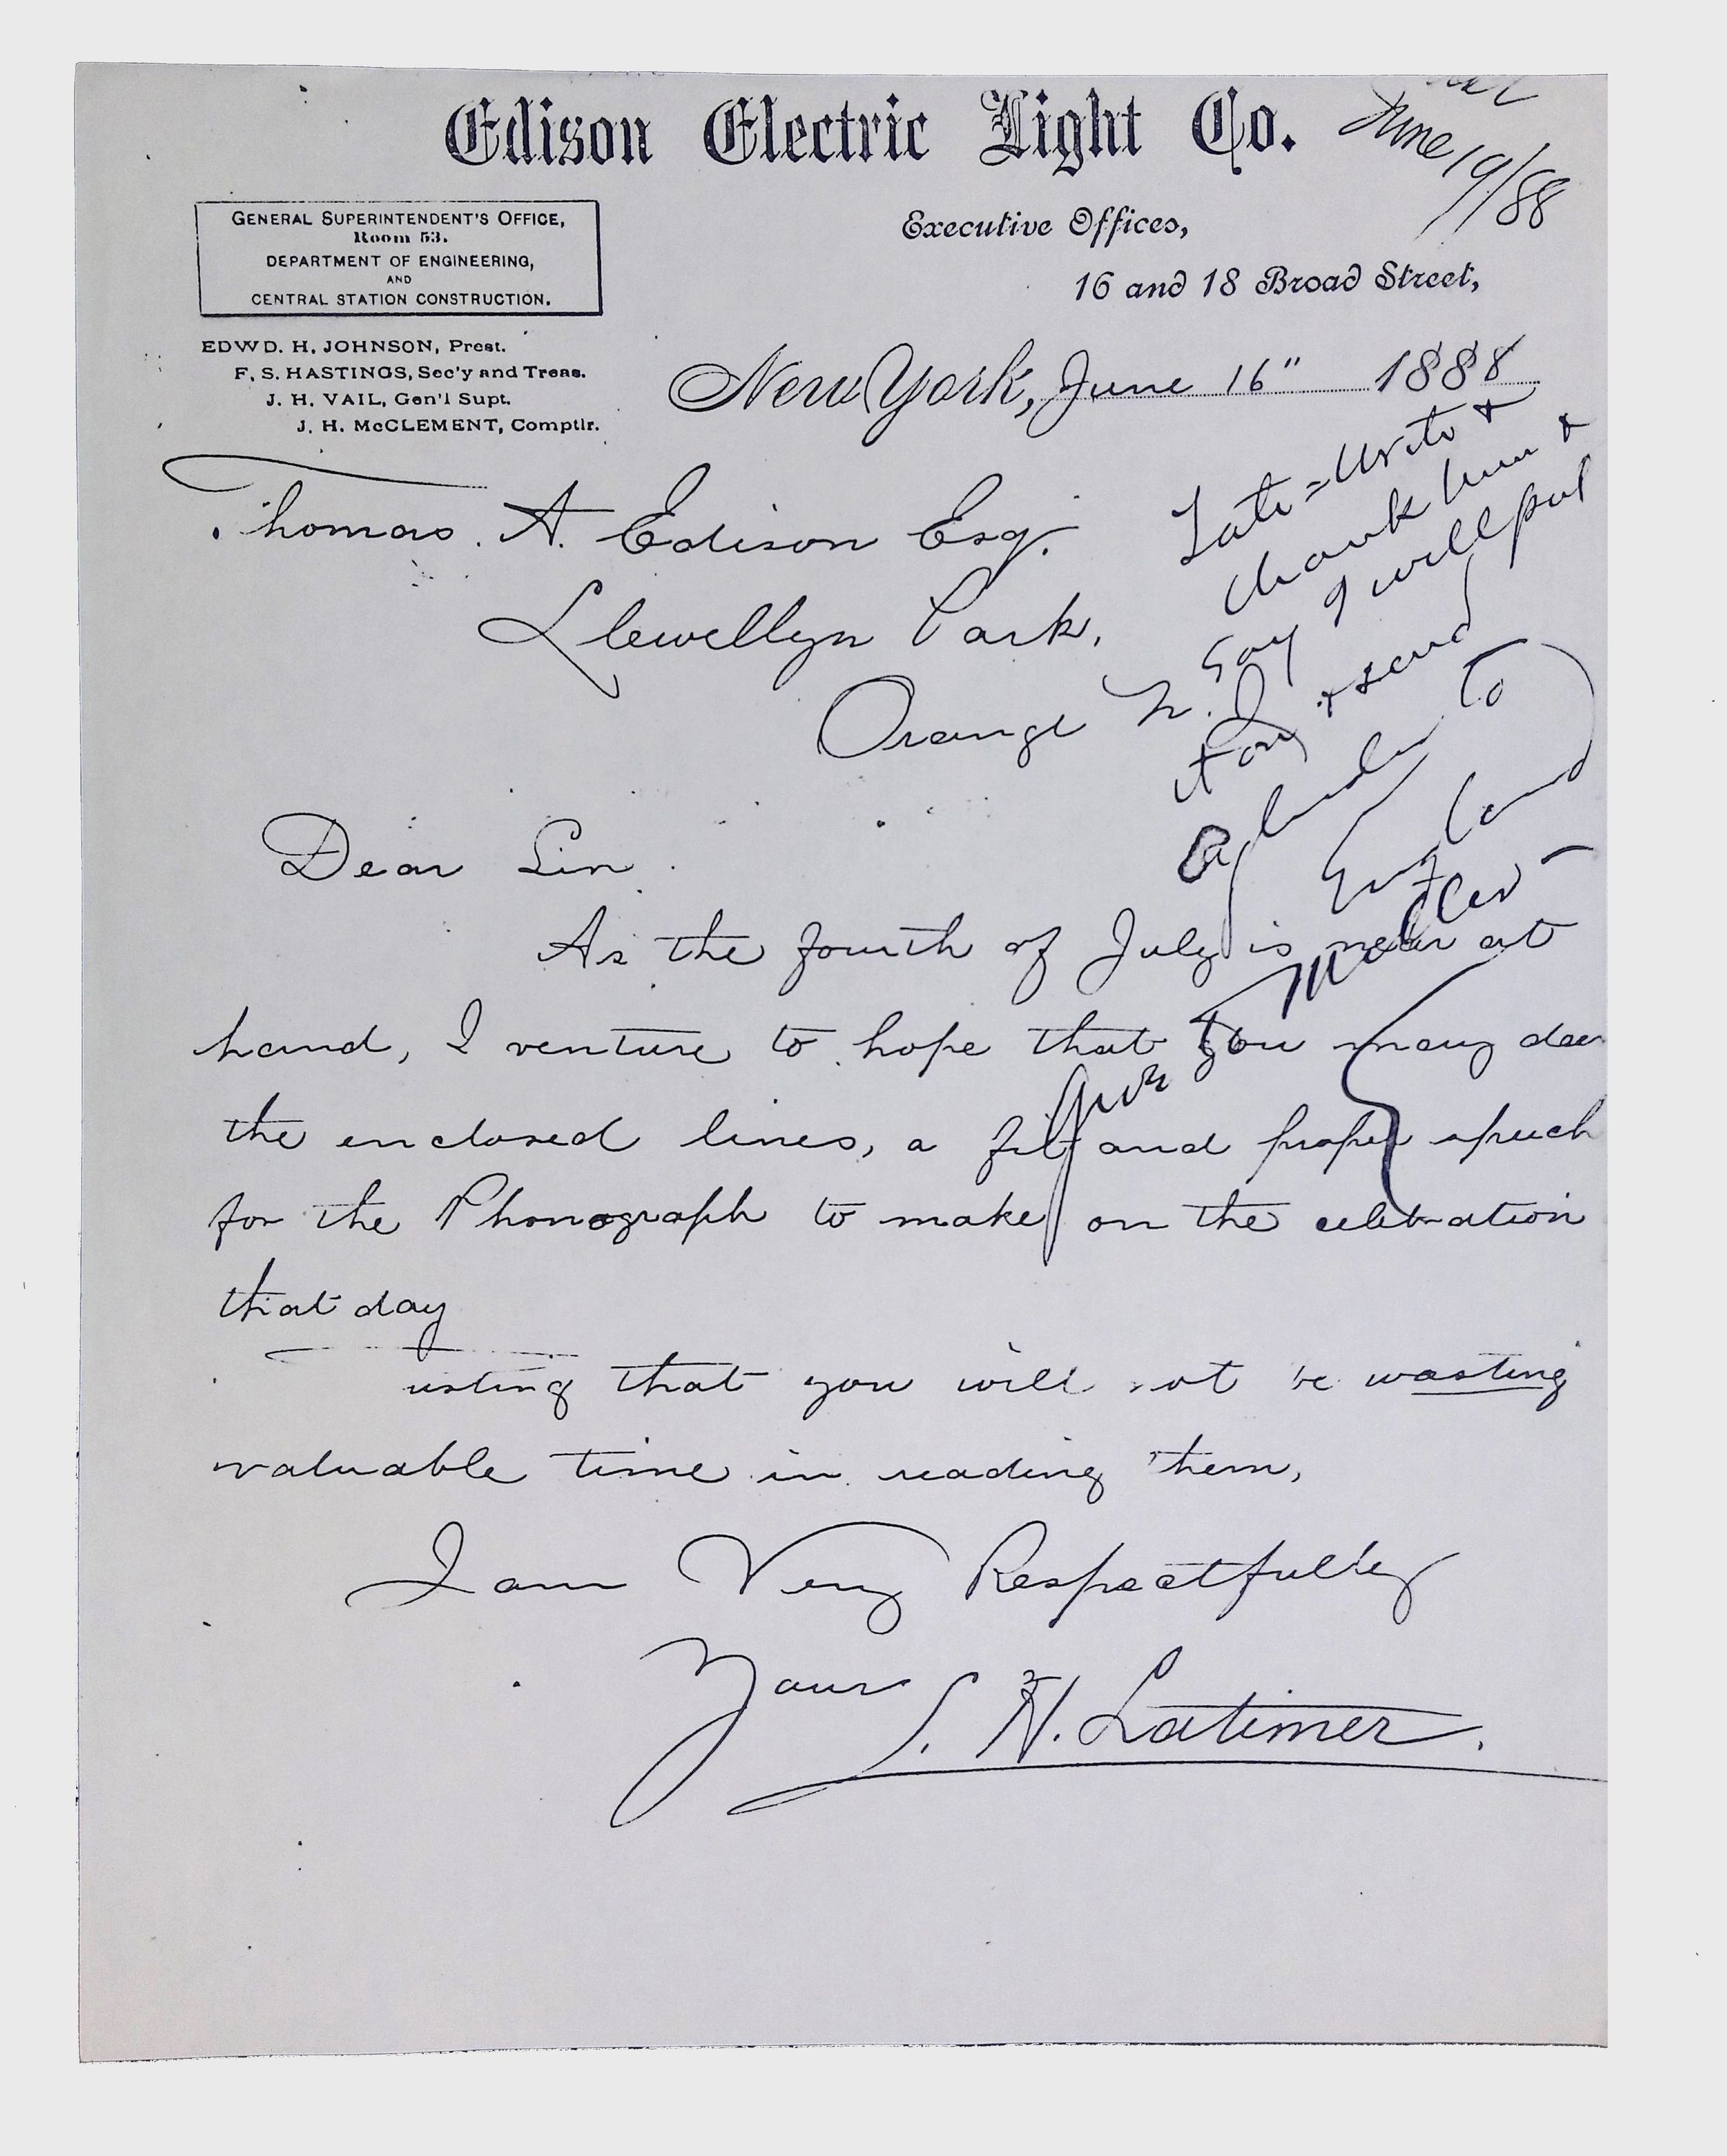 Edison Electric Light Co.
June 19/88
GENERAL SUPERINTENDENT'S OFFICE,
Room 53.
DEPARTMENT OF ENGINEERING,
AND
CENTRAL STATION CONSTRUCTION.
Executive Offices,
16 and 18 Broad Street,
EDWD. H. JOHNSON, Prest.
F. S. HASTINGS, Sec'y and Treas.
J. H. VAIL, Gen'l Supt.
J. H. McCLEMENT, Comptlr.
New York, June 16" 1888
Tate = Write &
thank him &
say I will put
it on & send
cylinder to
England
Thomas. A. Edison Esq.
Llewellyn Park,
Orange N. J.
Dear Sir
As the fourth of July is near at
hand, I venture to hope that you may
the enclosed lines, a fit and proper speech
for the Phonograph to make on the celebration
that day
usting that you will not be wasting
valuable time in reading them,
I am Very Respectfully
Yours
L. H. Latimer.